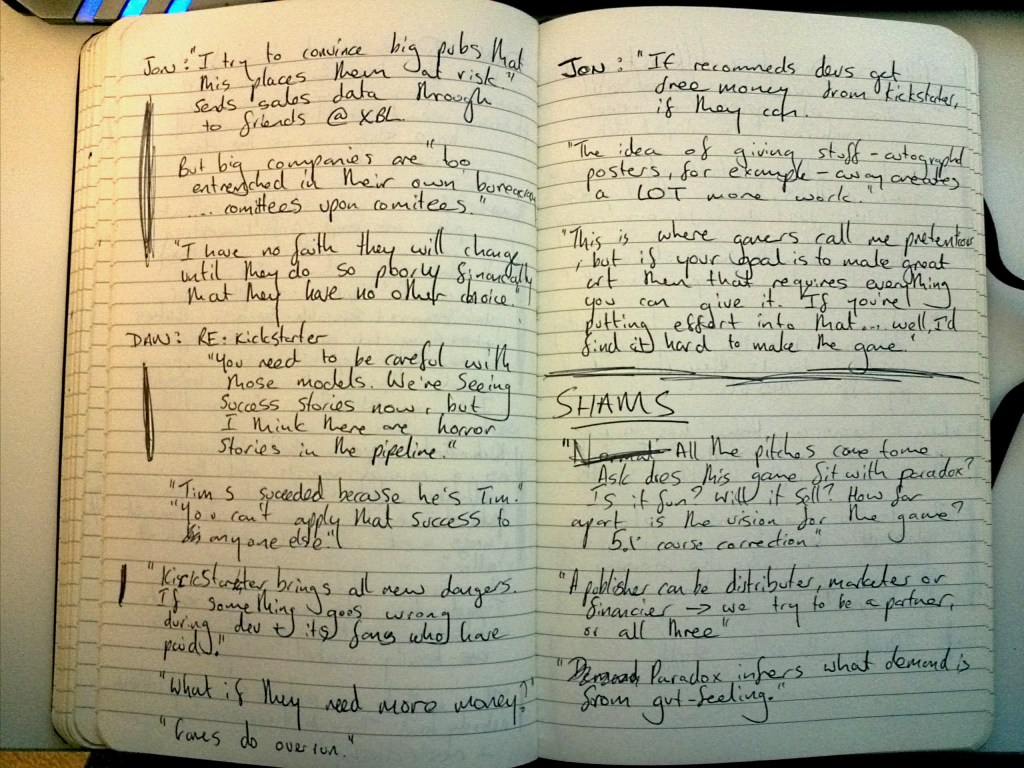 JON: "I try to convince big pubs that
this places them at risk."
sends sales data through
to friends @ XBL.
But big companies are "too
entrenched in their own
.... comittees upon comitees."
"I have no faith they will change
until they do so poorly financially
that they have no other choice."
DAN: RE: Kickstarter
"You need to be careful with
those models. We're seeing
success stories now, but
I think there are horror
stories in the pipeline."
"Tim s suceeded because he's Tim."
"You can't apply that success to
anyone else."
"Kickstarter brings all new dangers.
If something goes wrong
during dev + its fans who have
paid."
"What if they need more money?"
"Games do overrun."
JON: "If recommeds devs get
free money from kickstarter,
if they can.
"The idea of giving stuff - autographd
posters, for example - away creates
a LOT more work."
"This is where gamers call me pretentious
, but if your goal is to make great
art then that requires everything
you can give it. If you're
putting effort into that... well, I'd
find it hard to make the game."
SHAMS
"Normal" All the pitches come to me.
Ask does this game fit with paradox?
Is it fun? Will it sell? How far
apart is the vision for the game?
course correction."
"A publisher can be distributer, marketer or
financier → we try to be a partner,
or all three"
"Demand Paradox infers what demand is
from gut-feeling."